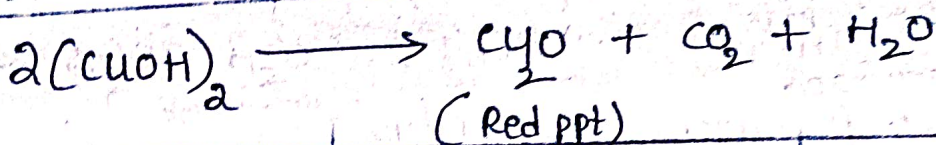 2(CUOH)₂ ⟶ Cu₂O + CO₂ + H₂O
(Red ppt)